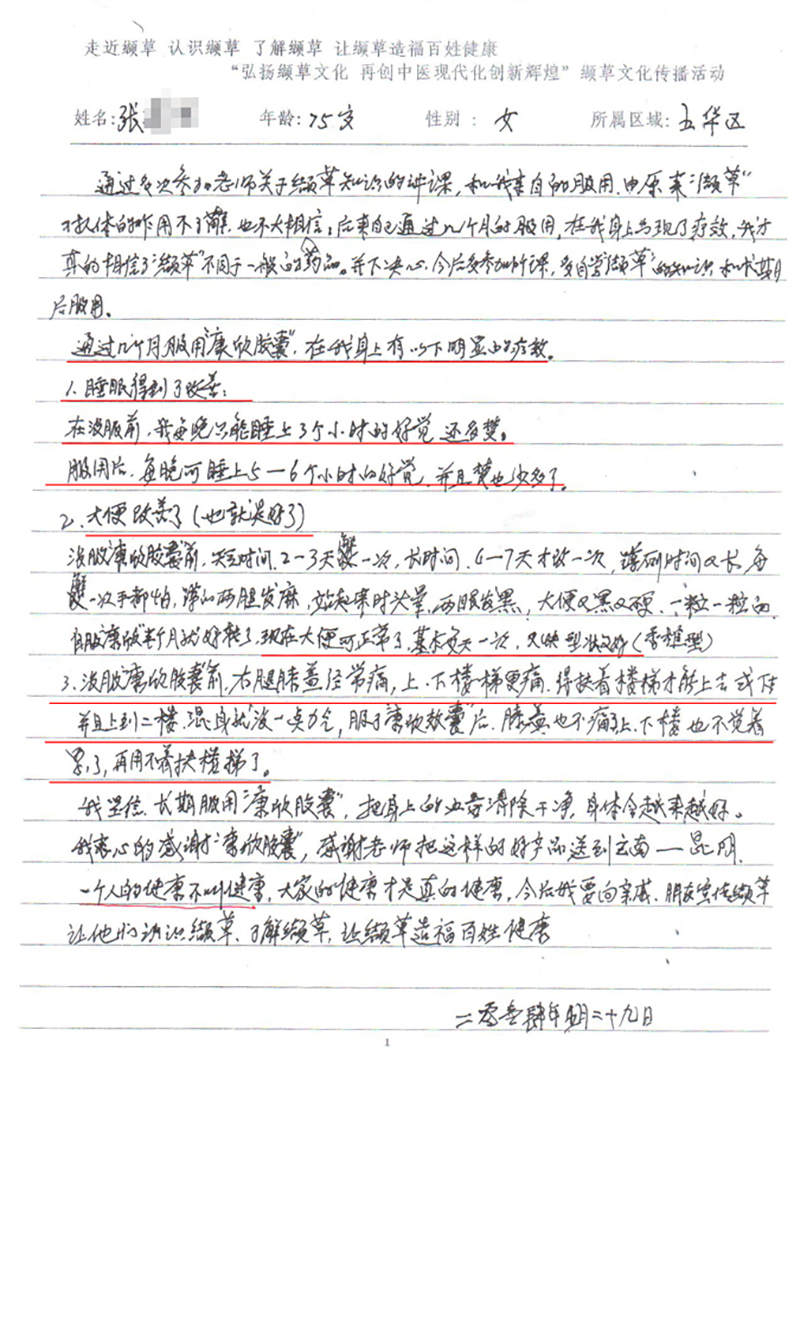 走近缬草 认识缬草 了解缬草 让缬草造福百姓健康
“弘扬缬草文化 再创中医现代化创新辉煌”缬草文化传播活动
姓名：张 年龄：75岁 性别：女 所属区域：五华区
通过多次参加老师关于缬草知识的讲课，和我亲自的服用。由原来“缬草”
对人体的作用不了解，也不大相信；后来自己通过几个月的服用，在我身上出现了疗效，我才
真的相信了“缬草”不同于一般的药品。并下决心，今后多参加听课，多自学“缬草”的知识和长期
后服用。
通过几个月服用“康欣胶囊”，在我身上有以下明显的疗效。
1.睡眠得到了改善：
在没服前，我每晚只能睡上3个小时的好觉 还多梦。
服用后，每晚可睡上5—6个小时的好觉，并且梦也少多了。
2.大便改善了（也就是好了）
没服“康欣胶囊”前，短时间，2—3天 一次，长时间，6—7天才放一次，蹲厕时间又长，每
一次手都怕，蹲的两腿发麻，站起来时头晕，两眼发黑，大便又黑又硬，一粒一粒的，
自服“康欣”半个月就好转了，现在大便可正常了，基本每天一次，又快型状又好（香蕉型）
3.没服“康欣胶囊”前，右腿膝盖经常痛，上、下楼梯更痛，得扶着楼梯才能上去或下
并且上到二楼，混身就没一点力气，服了“康欣胶囊”后，膝盖也不痛了上、下楼也不觉着
累了，再用不着扶楼梯了。
我坚信，长期服用“康欣胶囊”，把身上的 毒清除干净，身体会越来越好。
我衷心的感谢“康欣胶囊”，感谢老师把这样的好产品送到云南—昆明。
一个人的健康不叫健康，大家的健康才是真的健康，今后我要向亲戚、朋友宣传缬草
让他们认识缬草，了解缬草，让缬草造福百姓健康
二零壹肆年 月二十九日
1